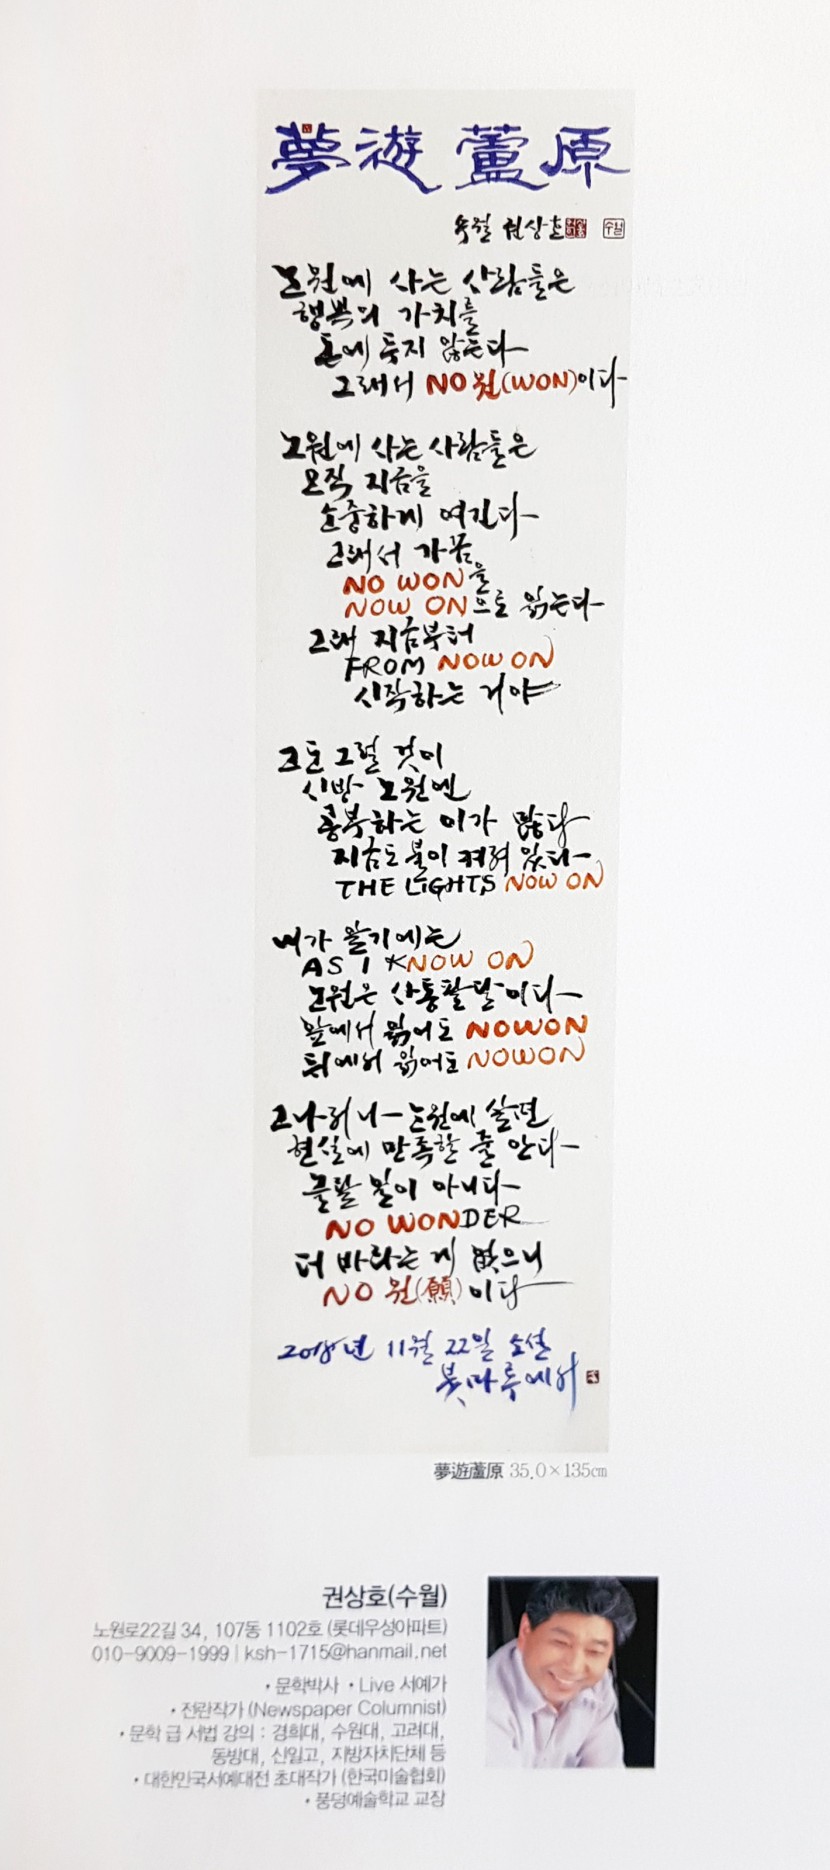 夢遊 蘆原
수월 권상호
노원에 사는 사람들은
행복의 가치를
돈에 두지 않는다
그래서 NO 원(WON)이다
노원에 사는 사람들은
오직 지금을
소중하게 여긴다
그래서 가끔
NO WON을
NOW ON으로 읽는다
그래 지금부터
FROM NOW ON
시작하는 거야
그도 그럴 것이
시방 노원엔
공부하는 이가 많다
지금도 불이 켜져 있다
THE LIGHTS NOW ON
내가 알기에는
AS I KNOW ON
노원은 사통팔달이다
앞에서 읽어도 NOWON
뒤에서 읽어도 NOWON
그나저나 노원에 살면
현실에 만족할 줄 안다
놀랄 일이 아니다
NO WONDER
더 바라는 게 없으니
NO 원(願)이다
2018년 11월 22일 소설
붓마루에서
夢遊蘆原 35.0×135㎝
권상호(수월)
노원로22길 34, 107동 1102호 (롯데우성아파트)
010-9009-1999 | ksh-1715@hanmail.net
・문학박사 ・Live 서예가
・전란작가 (Newspaper Columnist)
・문학 급 서법 강의 : 경희대, 수원대, 고려대,
동방대, 신일고, 지방자치단체 등
・대한민국서예대전 초대작가 (한국미술협회)
・풍덩예술학교 교장